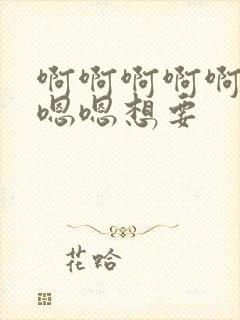 啊啊啊啊啊
嗯嗯想要
花哈